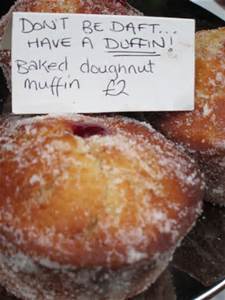 DON'T BE DAFT...
HAVE A DUFFIN!
Baked doughnut
muffin £2